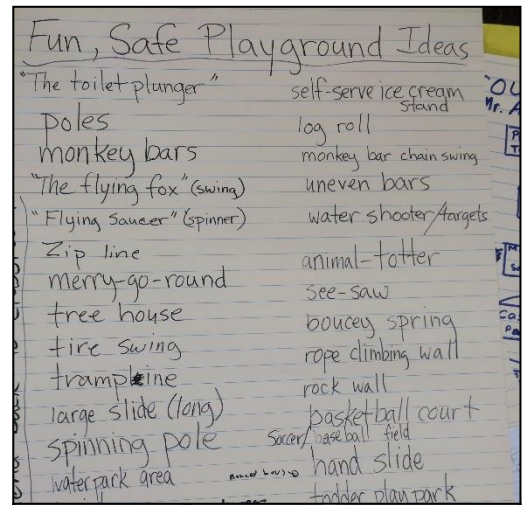 Fun, Safe Playground Ideas
"The toilet plunger"
poles
monkey bars
"The flying fox" (swing)
"Flying Saucer" (spinner)
Zip line
merry-go-round
tree house
tire swing
trampoline
large slide (long)
spinning pole
waterpark area
self-serve ice cream
stand
log roll
monkey bar chain swing
uneven bars
water shooter/targets
animal-totter
see-saw
boucey spring
rope climbing wall
rock wall
basketball court
Soccer/baseball field
hand slide
toddler play park